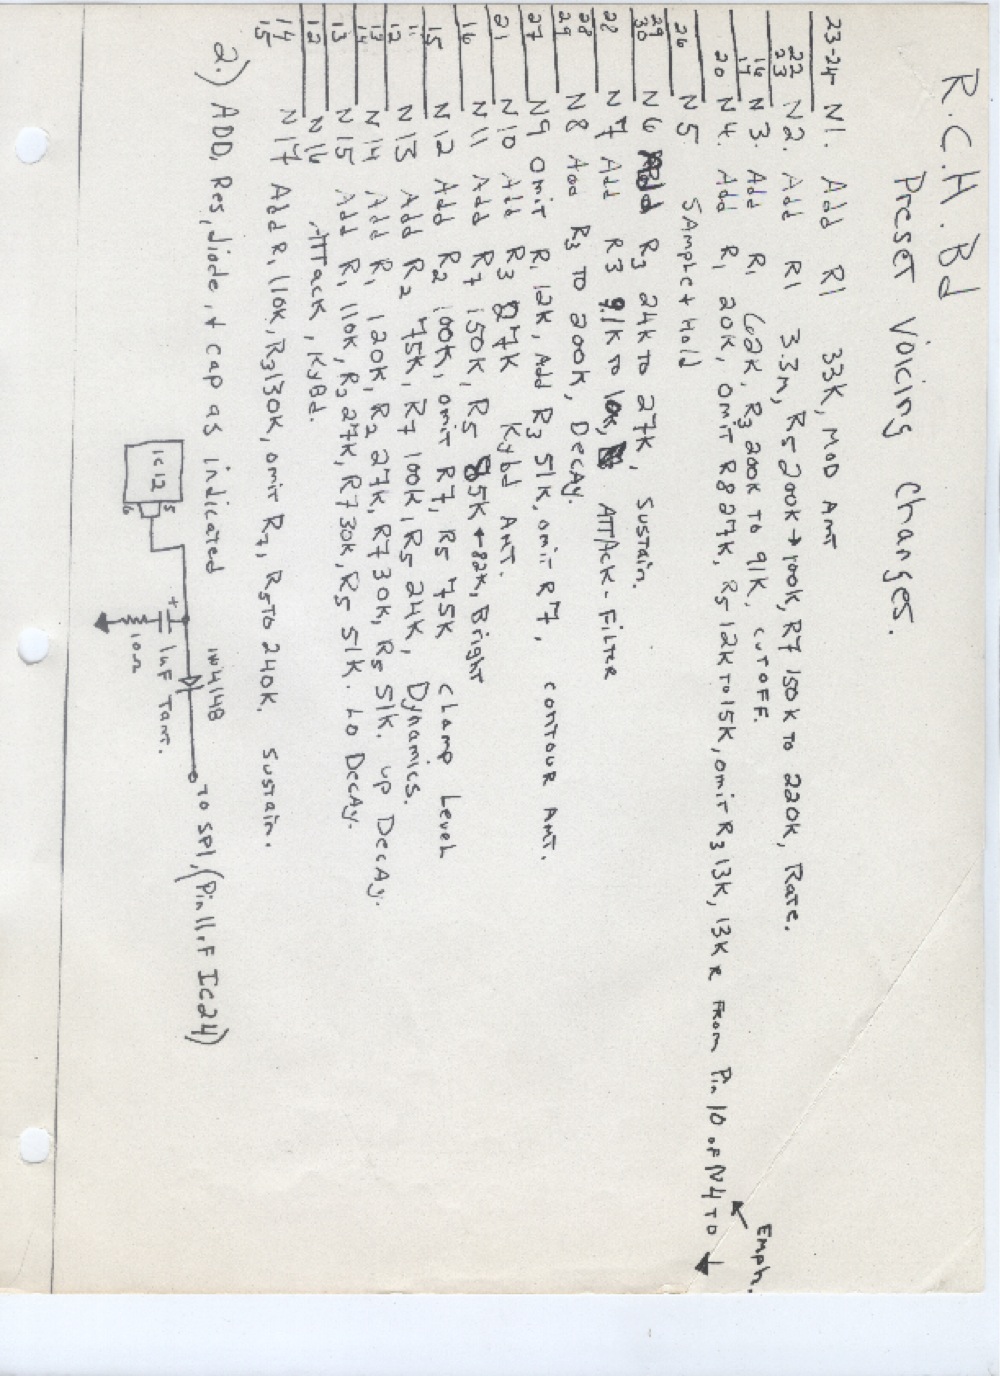 R.C.H. Bd
Preset Voicing Changes.
23-24 N1. Add R1 33K, MOD AMT
22 23 N2. Add R1 3.3m, R5 200K → 100K, R7 150K to 220K, Rate.
16 17 N3. Add R1 62K, R3 200K to 91K. cutoff.
20 N4. Add R1 20K, omit R8 27K, R5 12K to 15K, omit R3 13K, 13K R From Pin 10 of N4 to
Emph.
26 N5. Sample + Hold
29 30 N6 Add R3 24K to 27K, Sustain.
28 N7 Add R3 9.1K to 10K, ATTACK-Filter
28 29 N8 Add R3 TO 200K, Decay.
27 N9 omit R1 12K, Add R3 51K, omit R7, contour AMT.
21 N10 Add R3 27K Kybd AMT.
16 N11 Add R7 150K, R5 85K ← 82K, Bright
15 N12 Add R2 100K, omit R7, R5 75K clamp Level
11 12 N13 Add R2 75K, R7 100K, R5 24K, Dynamics.
13 14 N14 Add R1 120K, R2 27K, R7 30K, R5 51K. up Decay.
13 N15 Add R1 110K, R2 27K, R7 30K, R5 51K. Lo Decay.
12 N16 ATTack, KyBd.
14 15 N17 Add R1 110K, R3 130K, omit R7, R5 TO 240K. Sustain.
2.) ADD, Res, diode, + cap as indicated
IC12
5
6
+
1uF Tant.
10Ω
1N4148
TO SP1, (Pin 11 of IC24)